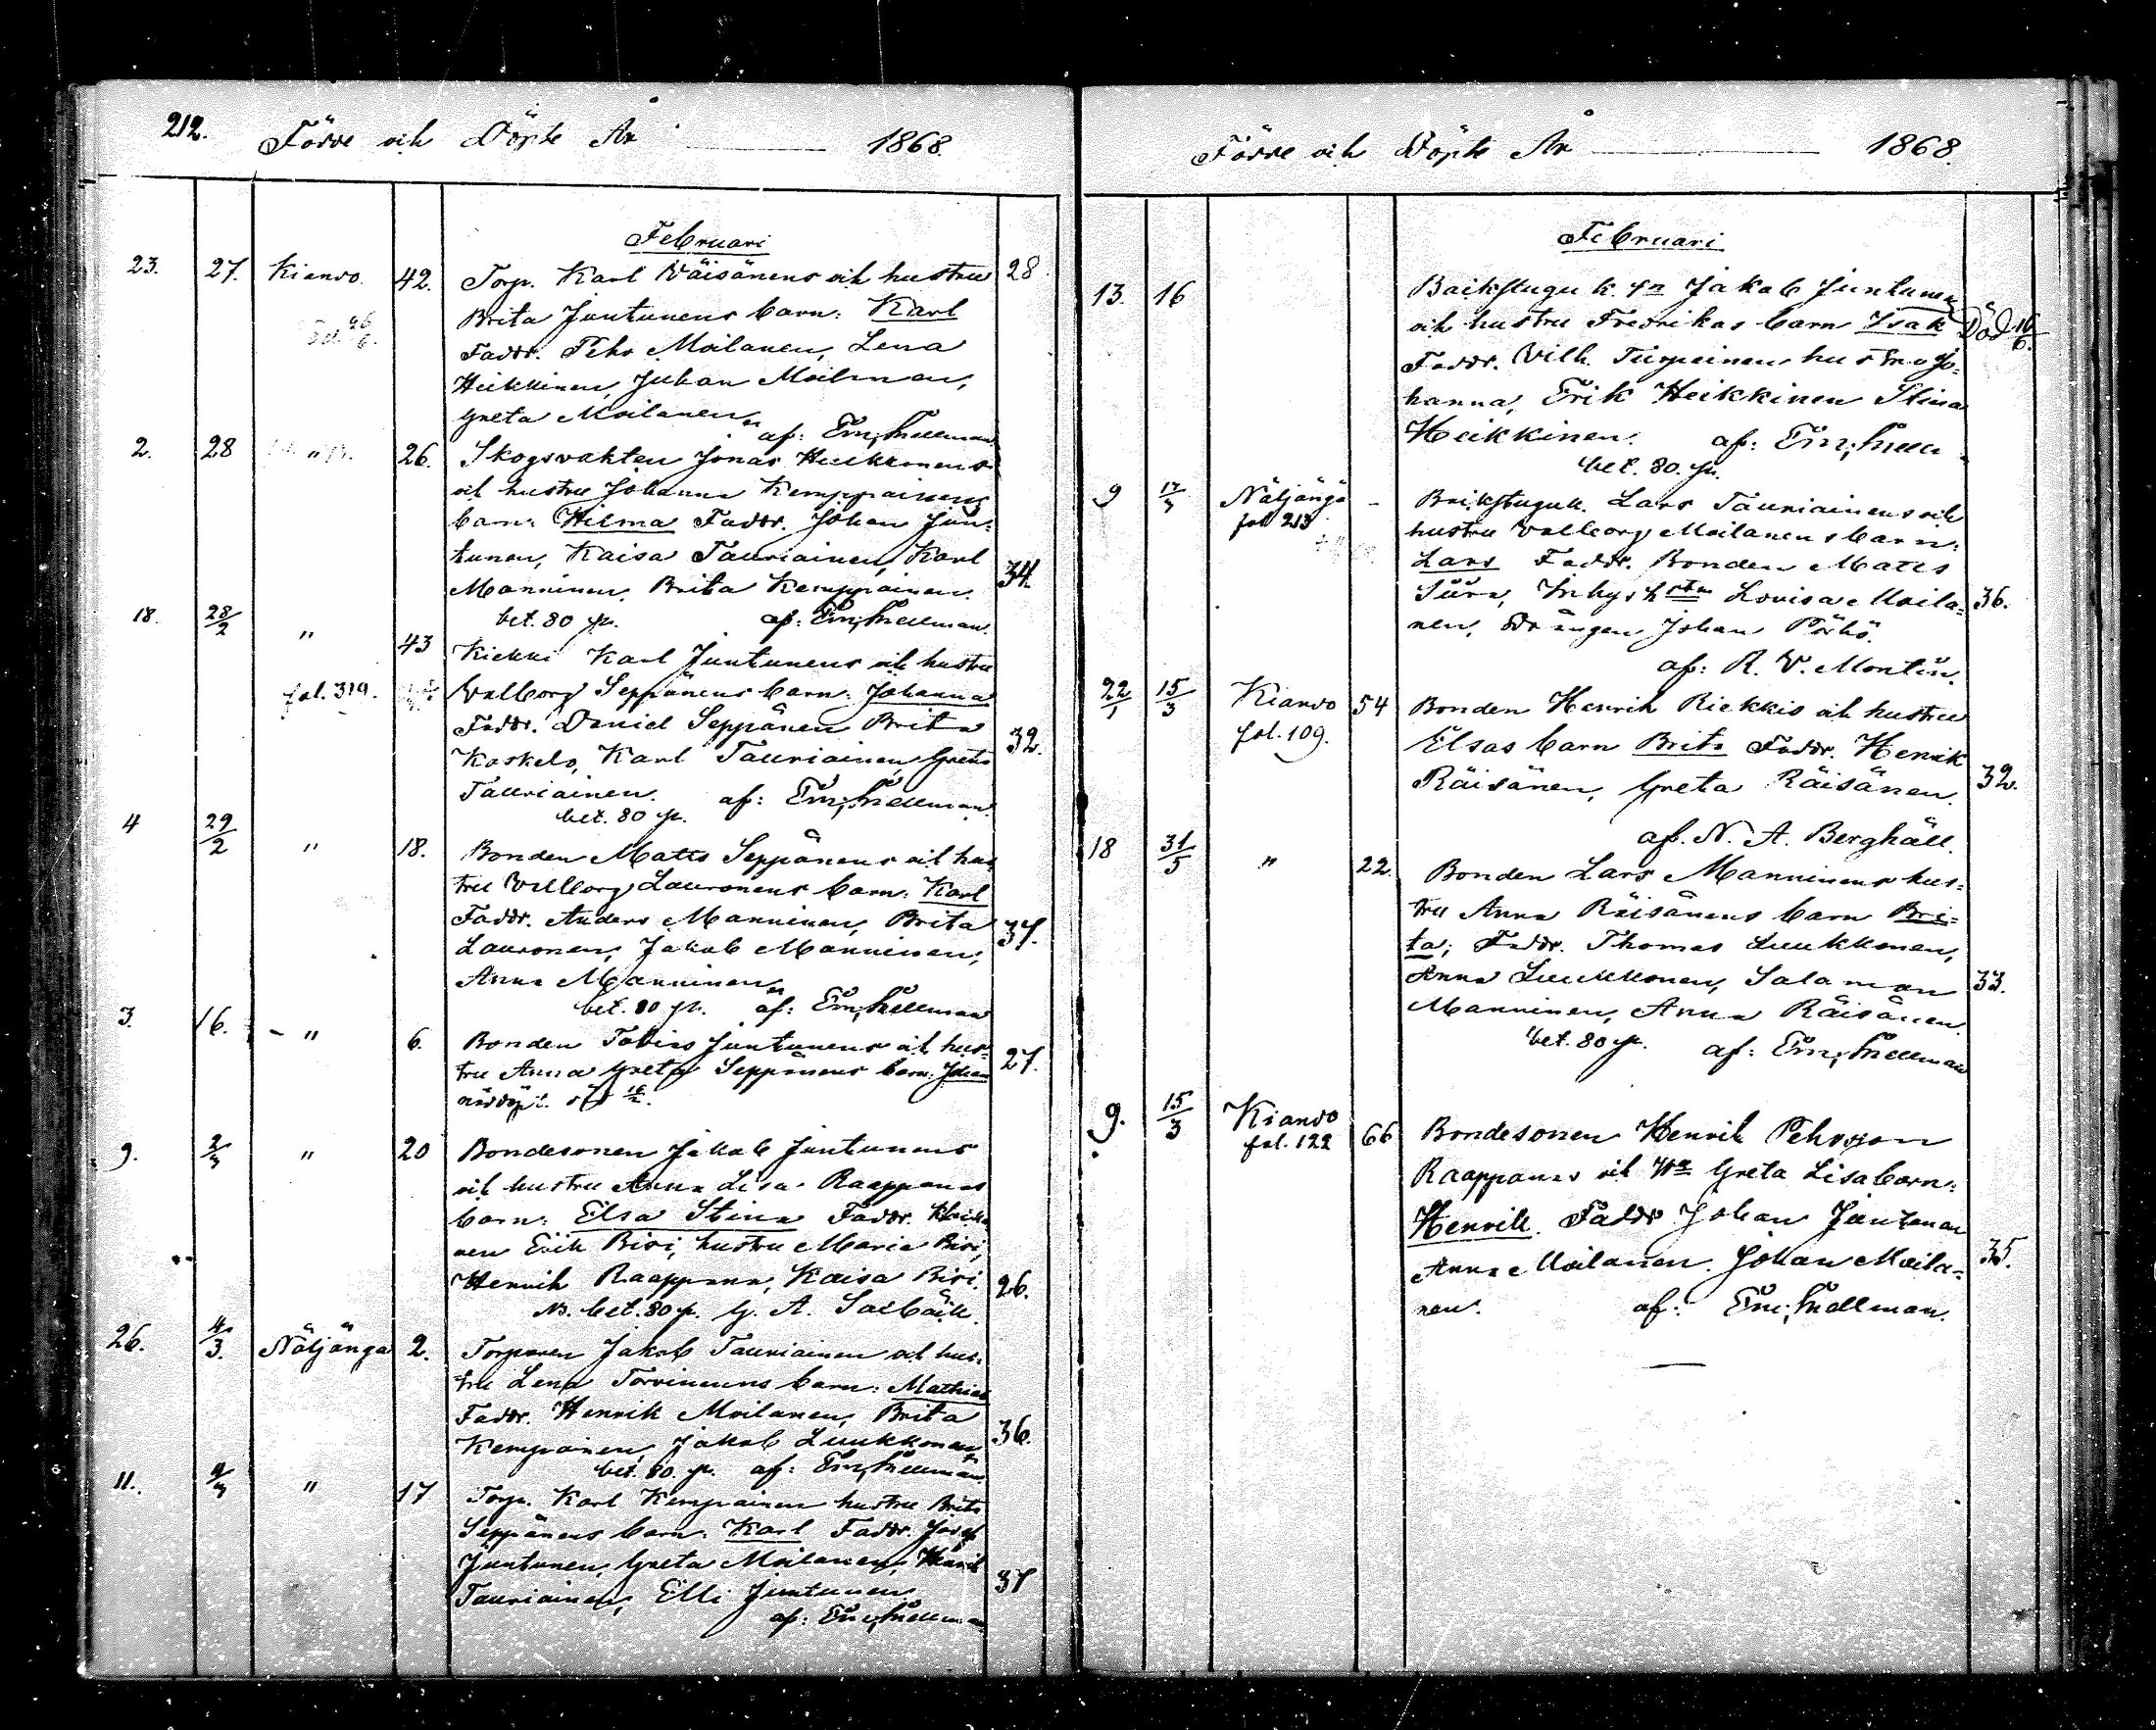 212. Födde och Döpte År 1868.
Februari
23. 27. Kiando. 42. Torp. Karl Väisänens och hustru 28
Brita Juntunens barn: Karl
Faddr. Pehr Moilanen, Lena
Heikkinen, Johan Moilanen,
Greta Moilanen
af: Em. Snellman
2. 28 " 26. Skogsvakten Jonas Heikkonens
och hustru Johanna Kemppainens
barn: Hilma Faddr. Johan Jun-
tunen, Kaisa Tauriainen, Karl
Manninen, Brita Kemppainen. 34.
bet. 80 p. af: Em. Snellman.
18. 28/2 " 43 Kiekki Karl Juntunens och hustru
fol. 319. Valborg Seppänens barn: Johanna
Faddr. Daniel Seppänen Brita
Koskelo, Karl Tauriainen, Greta 32.
Tauriainen. af: Em. Snellman.
bet. 80 p.
4 29/2 " 18. Bonden Matts Seppänens och hus-
tru Valborg Lauronens barn: Karl
Faddr. Anders Manninen, Brita 37.
Lauronen, Jakob Manninen,
Anna Manninen
bet. 80 p. af: Em. Snellman
3. 16. " 6. Bonden Tobias Juntunens och hus-
tru Anna Greta Seppänens barn: Johan 27.
nöddöpt. död
9. 2/3 " 20 Bondesonen Jakob Juntunens
och hustru Anna Lisa Raappanas
barn: Elsa Stina Faddr.
nen Erik Pisi, hustru Maria Pisi,
Henrik Raappana, Kaisa Pisi. 26.
bet. 80 p. G. A. Salbäck.
26. 4/3. Näljänga 2. Torparen Jakob Tauriainen och hus-
tru Lena Torvinens barn: Mathias
Faddr. Henrik Moilanen, Brita
Kempainen, Jakob Luukkonen 36.
bet. 80. p. af: Em. Snellman.
11. 9/3 " 17 Torp. Karl Kempainen hustru Brita
Seppänens barn: Karl Faddr. Josef
Juntunen, Greta Moilanen, Henrik
Tauriainen, Elli Juntunen 37
af: Em. Snellman
Födde och Döpte År 1868.
Februari
13. 16 Backstugu k. sn Jakob Juntunen
och hustru Fredrikas barn Isak Död 16/6.
Faddr. Vilh. Turpeinen hustru Jo-
hanna, Erik Heikkinen Stina
Heikkinen. af: Em. Snell
bet. 80. p.
9 17/3 Näljängä - Backstuguk. Lars Tauriainens och
fol 213 hustru Valborg Moilanens barn:
Lars Faddr. Bonden Matts
Siira, Inhys h Lovisa Moila- 36.
nen, Drängen Johan Pörhö.
af: R. V. Montin.
22/1 15/3 Kiando 54 Bonden Henrik Riekkis och hustru
fol. 109. Elsas barn Brita Faddr. Henrik
Räisänen, Greta Räisänen. 32.
af. N. A. Berghäll.
18 31/5 " 22. Bonden Lars Manninens hus-
tru Anna Räisänens barn Bri-
ta; Faddr. Thomas Luukkonen,
Anna Luukkonen, Salamon 33.
Manninen, Anna Räisänen.
bet. 80 p. af: Em. Snellman
9. 15/3 Kiando 66 Bondesonen Henrik Pehrsson
fol. 122 Raappanas och Hu Greta Lisa barn:
Henrik. Faddr Johan Juntunen
Anna Moilanen. Johan Moila- 35.
nen. af: Em. Snellman.